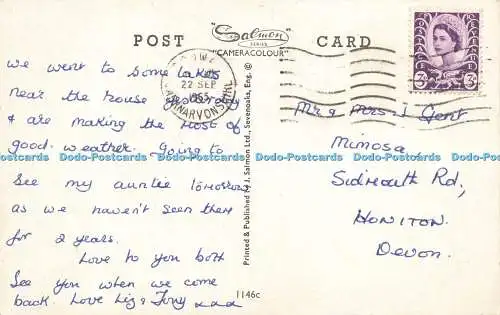 POST
"Salmon
SERIES
"CAMERACOLOUR"
CARD
22 SEP
CAERNARVONSHIRE
3D
3D
we went to some lakes
near the house yesterday
& are making the most of
good weather. Going to
see my auntie tomorrow
as we haven't seen them
for 2 years.
Love to you both
See you when we come
back. Love Liz & Tony xxx
Printed & Published by J. Salmon Ltd., Sevenoaks, Eng. ©
1146c
Mr & Mrs J Gent
Mimosa
Sidmouth Rd,
HONITON
Devon.
Dodo-Postcards Dodo-Postcards Dodo-Postcards Dodo-Postcards Dodo-Postcards Dodo-Postcards